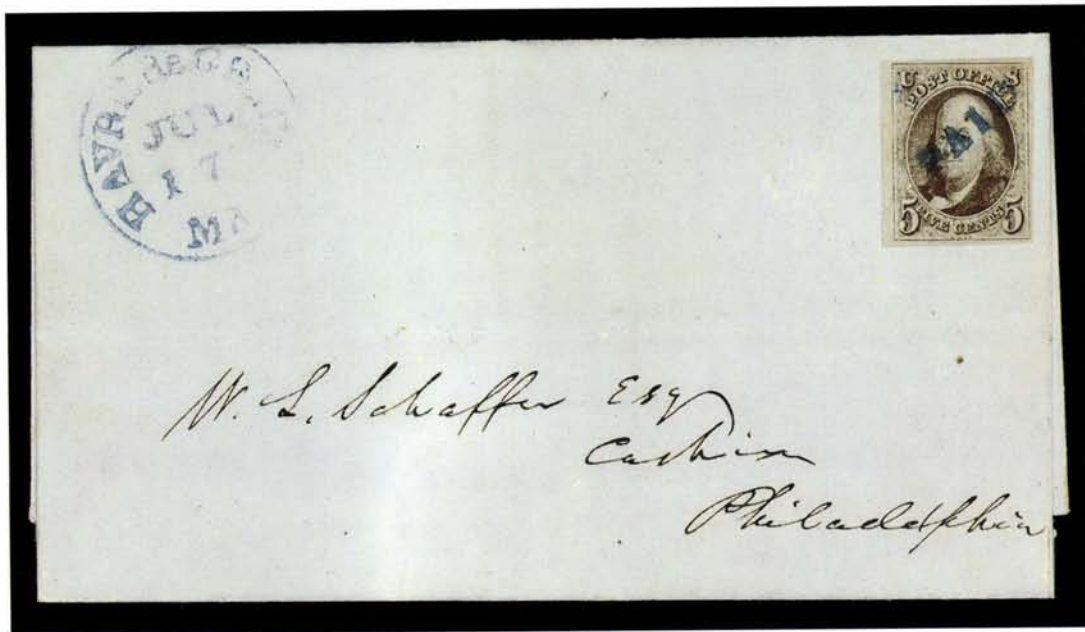 JUL
17
U S
POST OFFICE
PAI
5 FIVE CENTS 5
W. L. Schaffer Esq
Cashier
Philadelphia